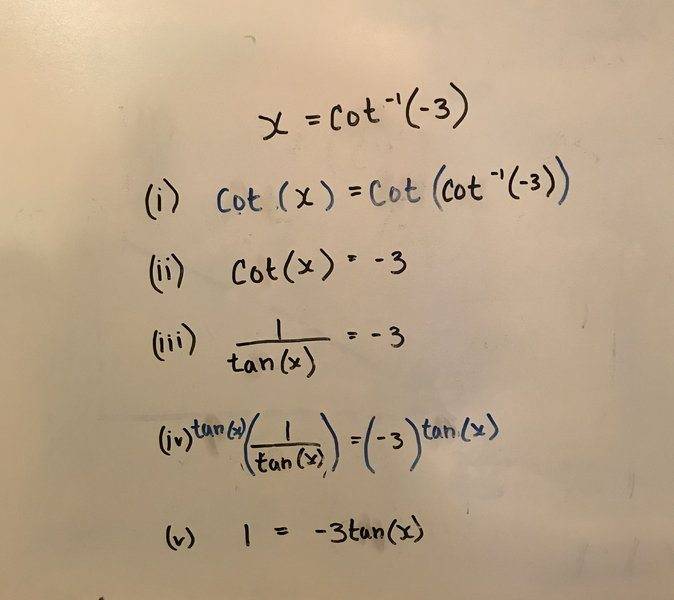 x = cot⁻¹(-3)
(i) cot(x) = cot(cot⁻¹(-3))
(ii) cot(x) = -3
(iii) 1/tan(x) = -3
(iv) tan(x)(1/tan(x)) = (-3)tan(x)
(v) 1 = -3tan(x)